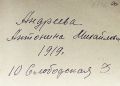 Андреева
Антонина Михайловна
1919.
10 Слободская 3